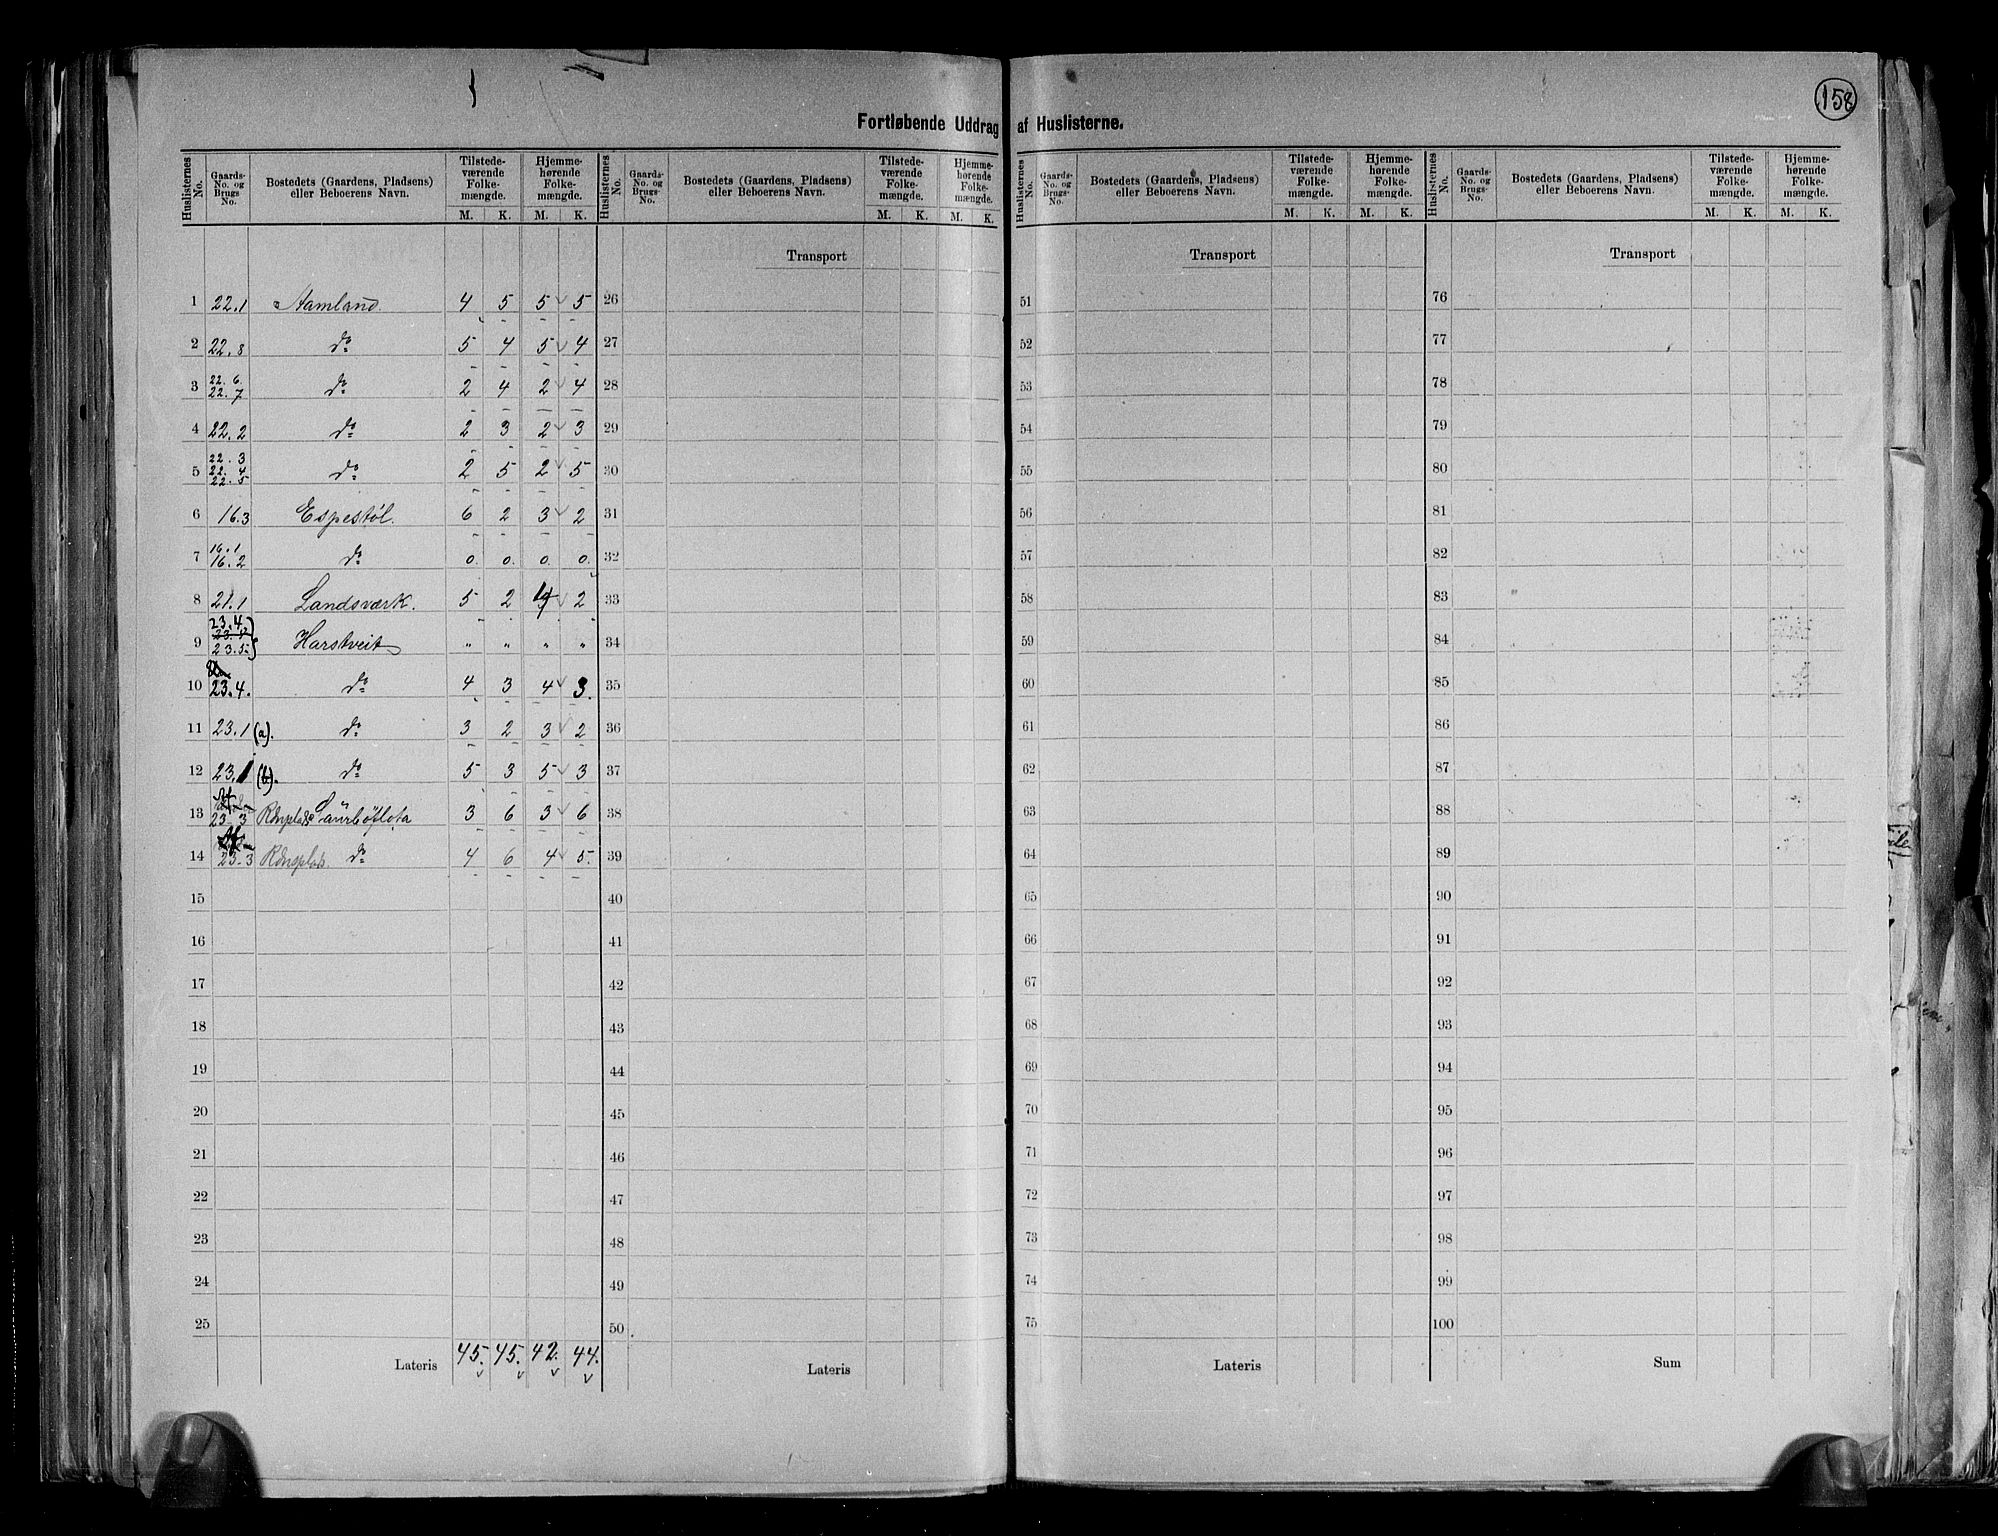 158
Fortløbende Uddrag af Huslisterne.
Huslisternes No. Gaards-No. og Brugs-No. Bostedets (Gaardens, Pladsens) eller Beboerens Navn. Tilstedeværende Folkemængde. M. K. Hjemmehørende Folkemængde. M. K.
Huslisternes No. Gaards-No. og Brugs-No. Bostedets (Gaardens, Pladsens) eller Beboerens Navn. Tilstedeværende Folkemængde. M. K. Hjemmehørende Folkemængde. M. K.
Huslisternes No. Gaards-No. og Brugs-No. Bostedets (Gaardens, Pladsens) eller Beboerens Navn. Tilstedeværende Folkemængde. M. K. Hjemmehørende Folkemængde. M. K.
Huslisternes No. Gaards-No. og Brugs-No. Bostedets (Gaardens, Pladsens) eller Beboerens Navn. Tilstedeværende Folkemængde. M. K. Hjemmehørende Folkemængde. M. K.
Transport Transport Transport
1 22.1 Aamland. 4 5 5 5 26 51 76
2 22.8 do 5 4 5 4 27 52 77
3 22.6. 22.7 do 2 4 2 4 28 53 78
4 22.2 do 2 3 2 3 29 54 79
5 22.3 22.4 22.5 do 2 5 2 5 30 55 80
6 16.3 Espestøl. 6 2 3 2 31 56 81
7 16.1 16.2 do 0. 0. 0. 0. 32 57 82
8 21.1 Landsværk. 5 2 4 2 33 58 83
9 23.4. 23.5 Harstveit " " " " 34 59 84
10 23.4. do 4 3 4 3. 35 60 85
11 23.1 (a). do 3 2 3 2 36 61 86
12 23.1 (b). do 5 3 5 3 37 62 87
13 23.3 Rdnsplads Saurbøflota 3 6 3 6 38 63 88
14 23.3 Rdnsplds. do 4 6 4 5. 39 64 89
15 40 65 90
16 41 66 91
17 42 67 92
18 43 68 93
19 44 69 94
20 45 70 95
21 46 71 96
22 47 72 97
23 48 73 98
24 49 74 99
25 50 75 100
Lateris 45. 45. 42. 44. Lateris Lateris Sum